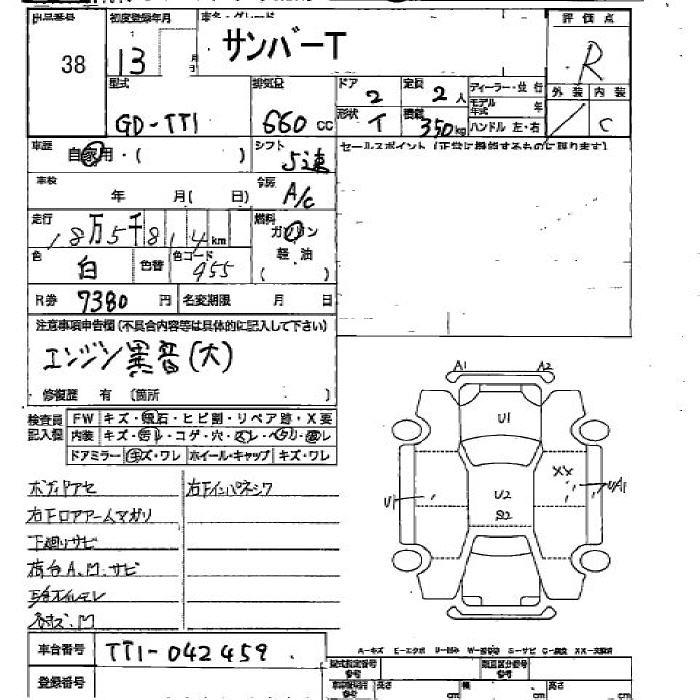 出品番号 初度登録年月 車名・グレード 評価点
38 13 月 サンバーT R
型式 排気量 ドア 2 定員 2人 ディーラー・並行 外装 内装
GD-TT1 660 cc 形状 T 積載 350kg モデル年式 年 ハンドル 左・右 C
車歴 自家用・( ) シフト 5速 セールスポイント (正常に機能するものに限ります)
車検 年 月( 日) 冷房 A/C
走行 18万5千814km 燃料 ガソリン
色 白 色替 色コード 955 軽油 ( )
R券 7380円 名変期限 月 日
注意事項申告欄(不具合内容等は具体的に記入して下さい)
エンジン異音(大)
修復歴 有 〔箇所 〕
検査員記入欄 FW キズ・飛石・ヒビ割・リペア跡・X要
内装 キズ・汚れ・コゲ・穴・
ドアミラー キズ・ワレ ホイール・キャップ キズ・ワレ
A1 A2
U1
XX
U1 U2 UA1
S2
ボディドアセ 右下インパネシワ
右下ロアアームマガリ
下廻りサビ
荷台A.M.サビ
車台番号 TT1-042459
A-キズ E-エクボ U-凹み W-波 S-サビ C-腐食 XX-交換済
登録番号 型式指定番号 類別区分番号
高さ cm 幅 cm 高さ cm